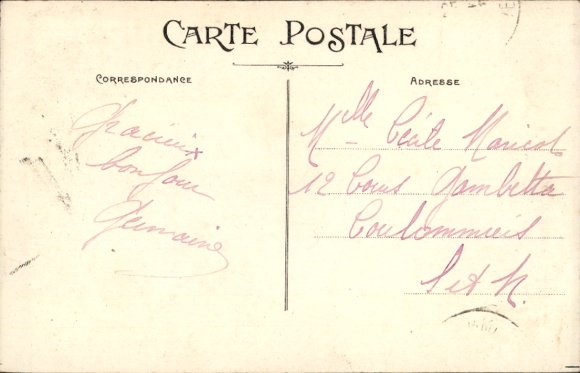 CARTE POSTALE
CORRESPONDANCE
Gracieux
bonjour
Germaine
ADRESSE
Mlle Cécile Maricot
12 Cours Gambetta
Coulommiers
S et M.